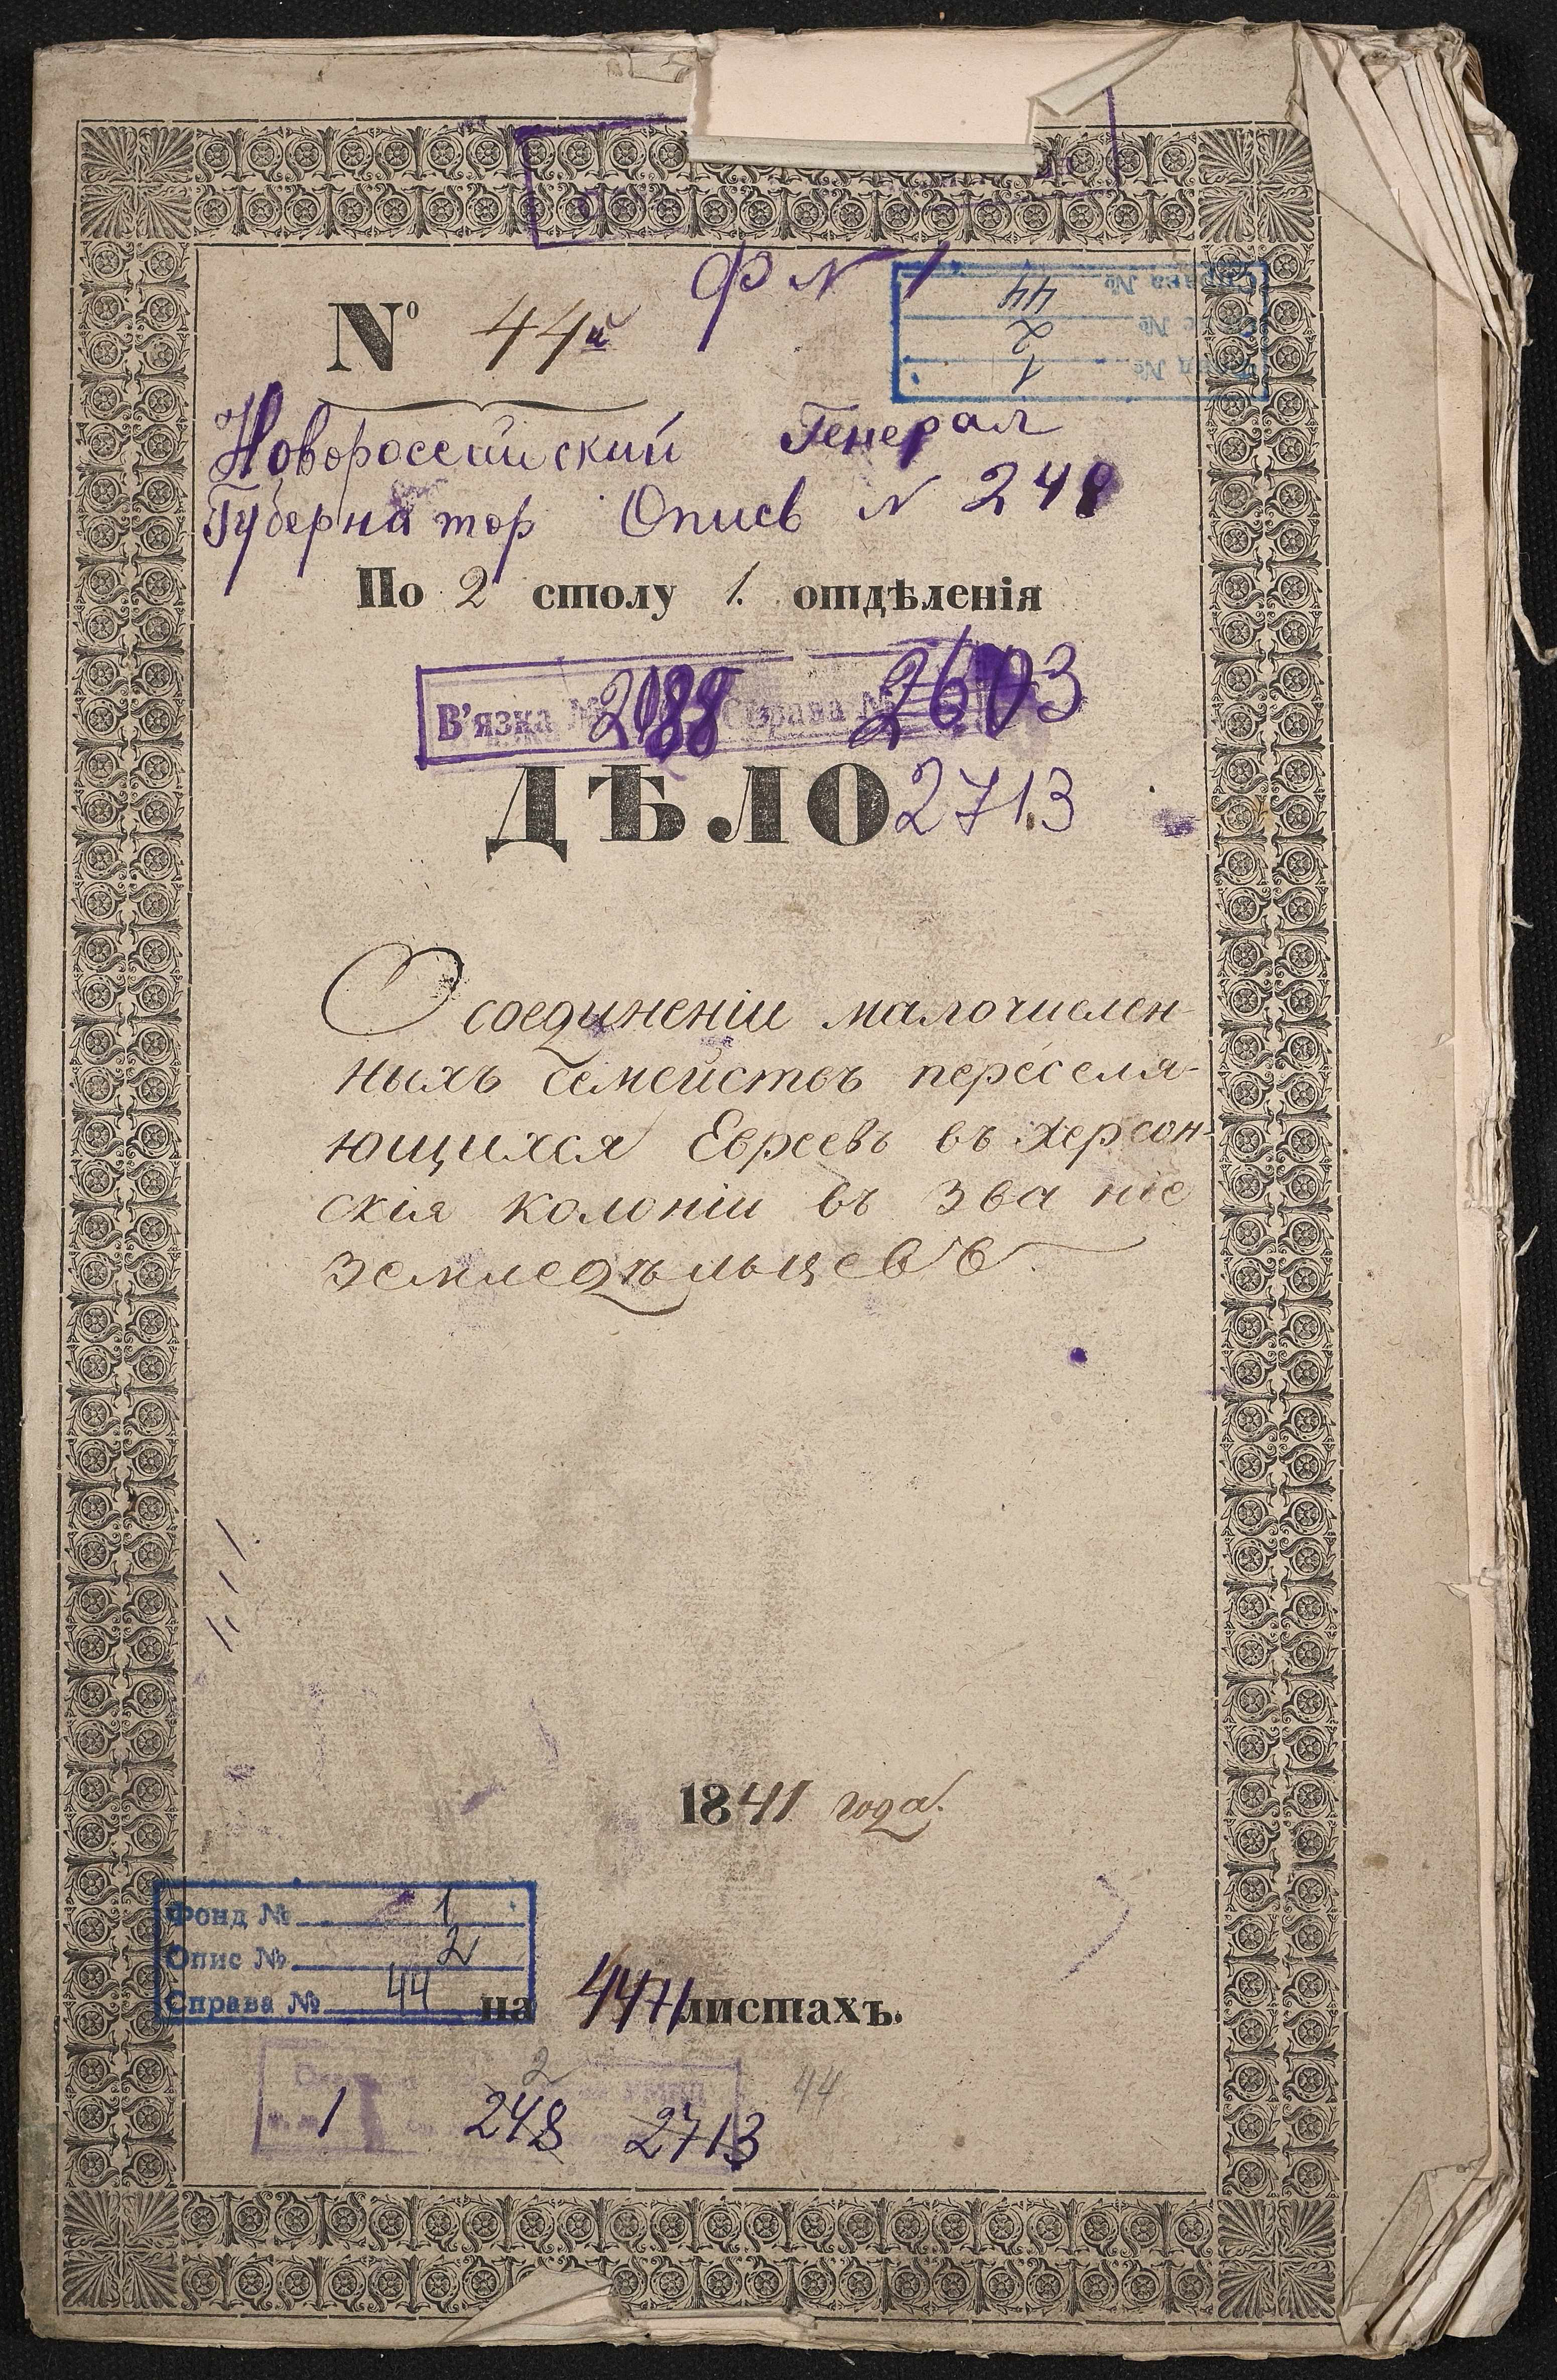 Ф № 1
№ 44а
Справа № 44
№ 2
№ 1
Новороссийский Генерал
Губернатор Опись № 248
По 2 столу 1. отдѣленія
В'язка № 2188 Справа № 2603
ДѢЛО 2713
О соединеніи малочислен-
ныхъ семействъ переселя-
ющихся Евреевъ въ Херсон-
скія колоніи въ званіе
земледѣльцевъ
1841 года.
Фонд № 1
Опис № 2
Справа № 44
на 447 листахъ.
2
44
1 248 2713